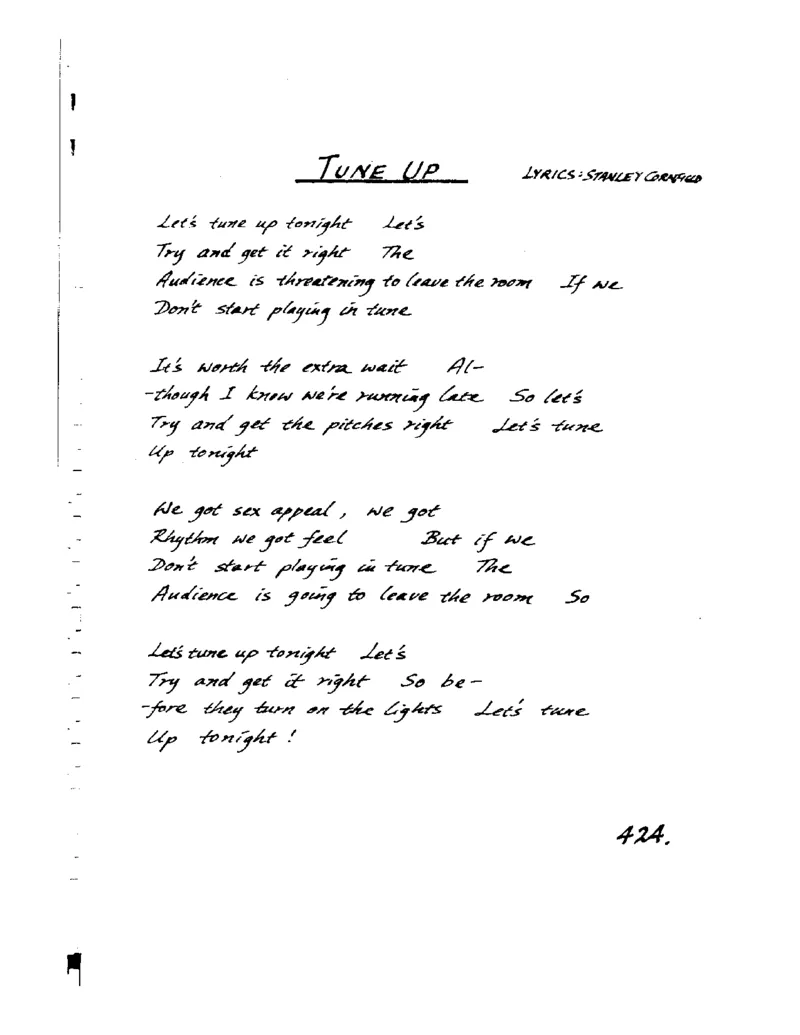 TUNE UP LYRICS: STANLEY CORNFIELD
Let's tune up tonight Let's
Try and get it right The
Audience is threatening to leave the room If we
Don't start playing in tune
It's worth the extra wait Al-
-though I know we're running late So let's
Try and get the pitches right Let's tune
Up tonight
We got sex appeal, we got
Rhythm we got feel But if we
Don't start playing in tune The
Audience is going to leave the room So
Let's tune up tonight Let's
Try and get it right So be-
-fore they turn on the lights Let's tune
Up tonight!
424.